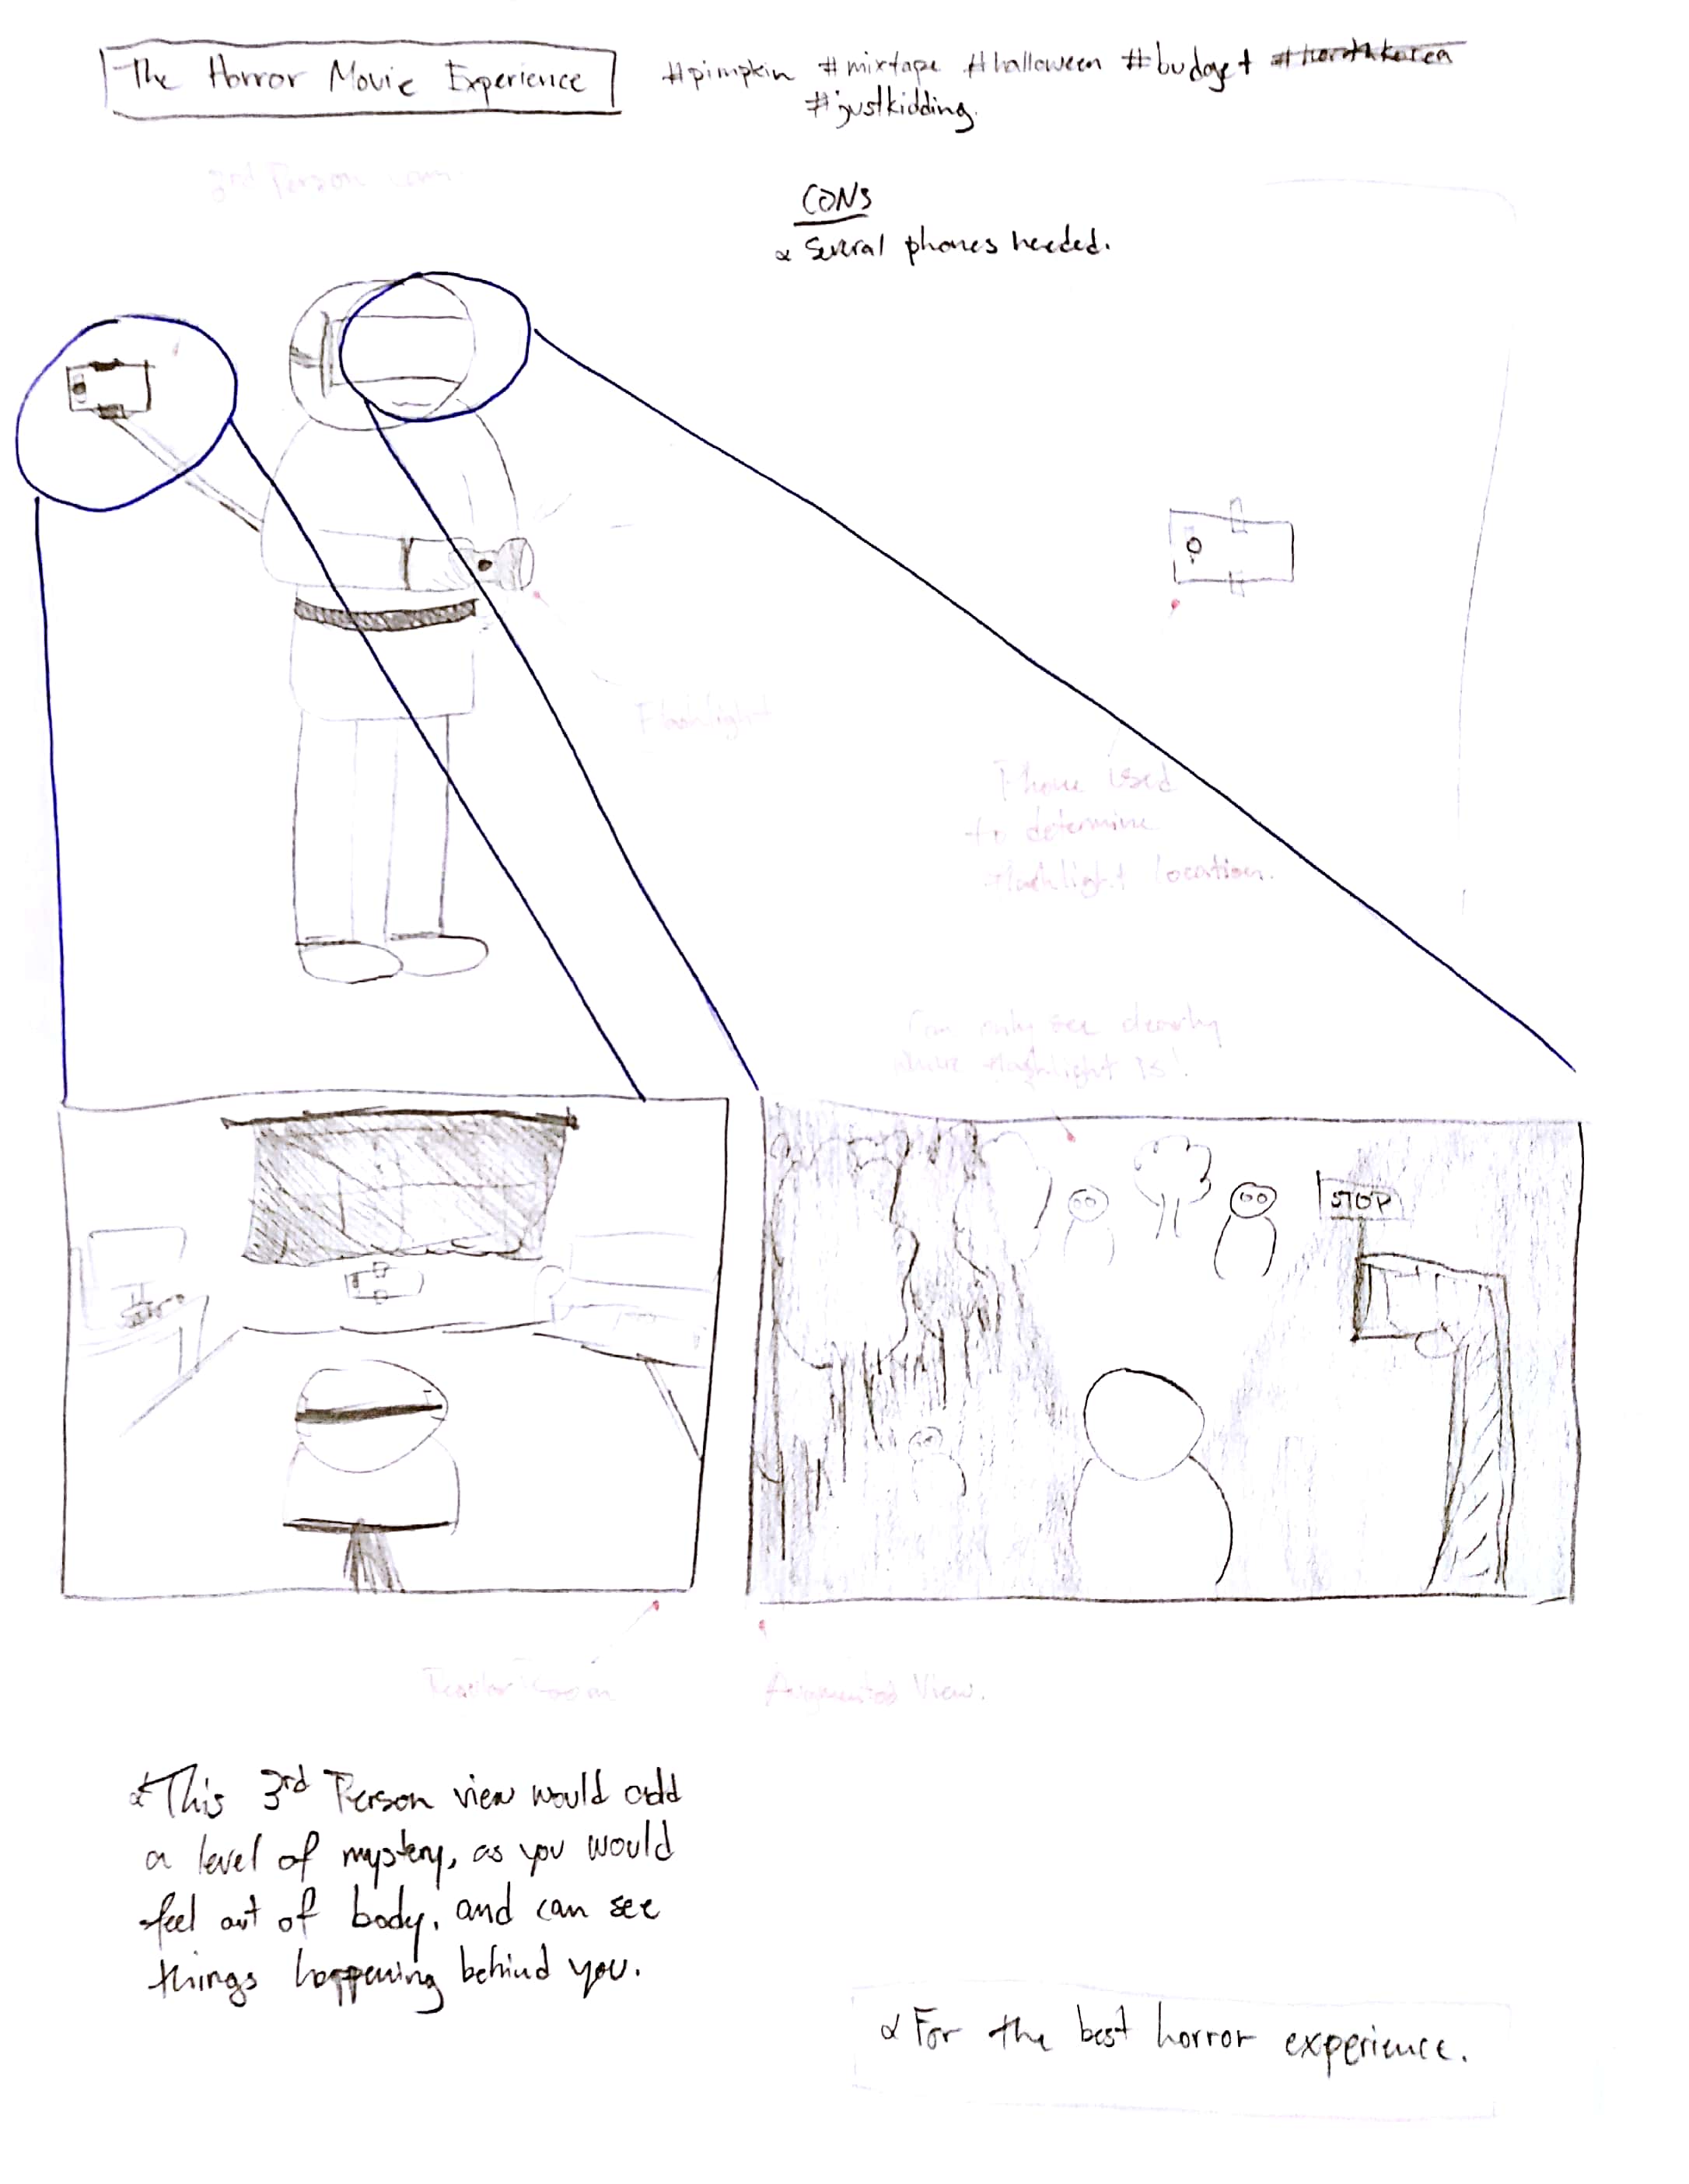 The Horror Movie Experience
#pimpkin #mixtape #halloween #budget #northkorea
#justkidding.
3rd Person
CONS
∝ Several phones needed.
Flashlight
Phone used
to determine
flashlight location.
Can only see clearly
where flashlight is!
STOP
Room
Augmented View.
∝ This 3rd Person view would add
a level of mystery, as you would
feel out of body, and can see
things happening behind you.
∝ For the best horror experience.